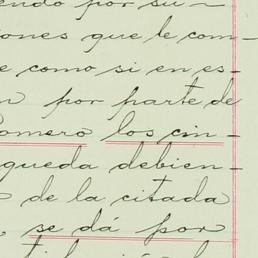 endo por su-
iones que le com-
e como si en es-
n por parte de
Romero los cin-
queda debien-
de la citada
se dá por